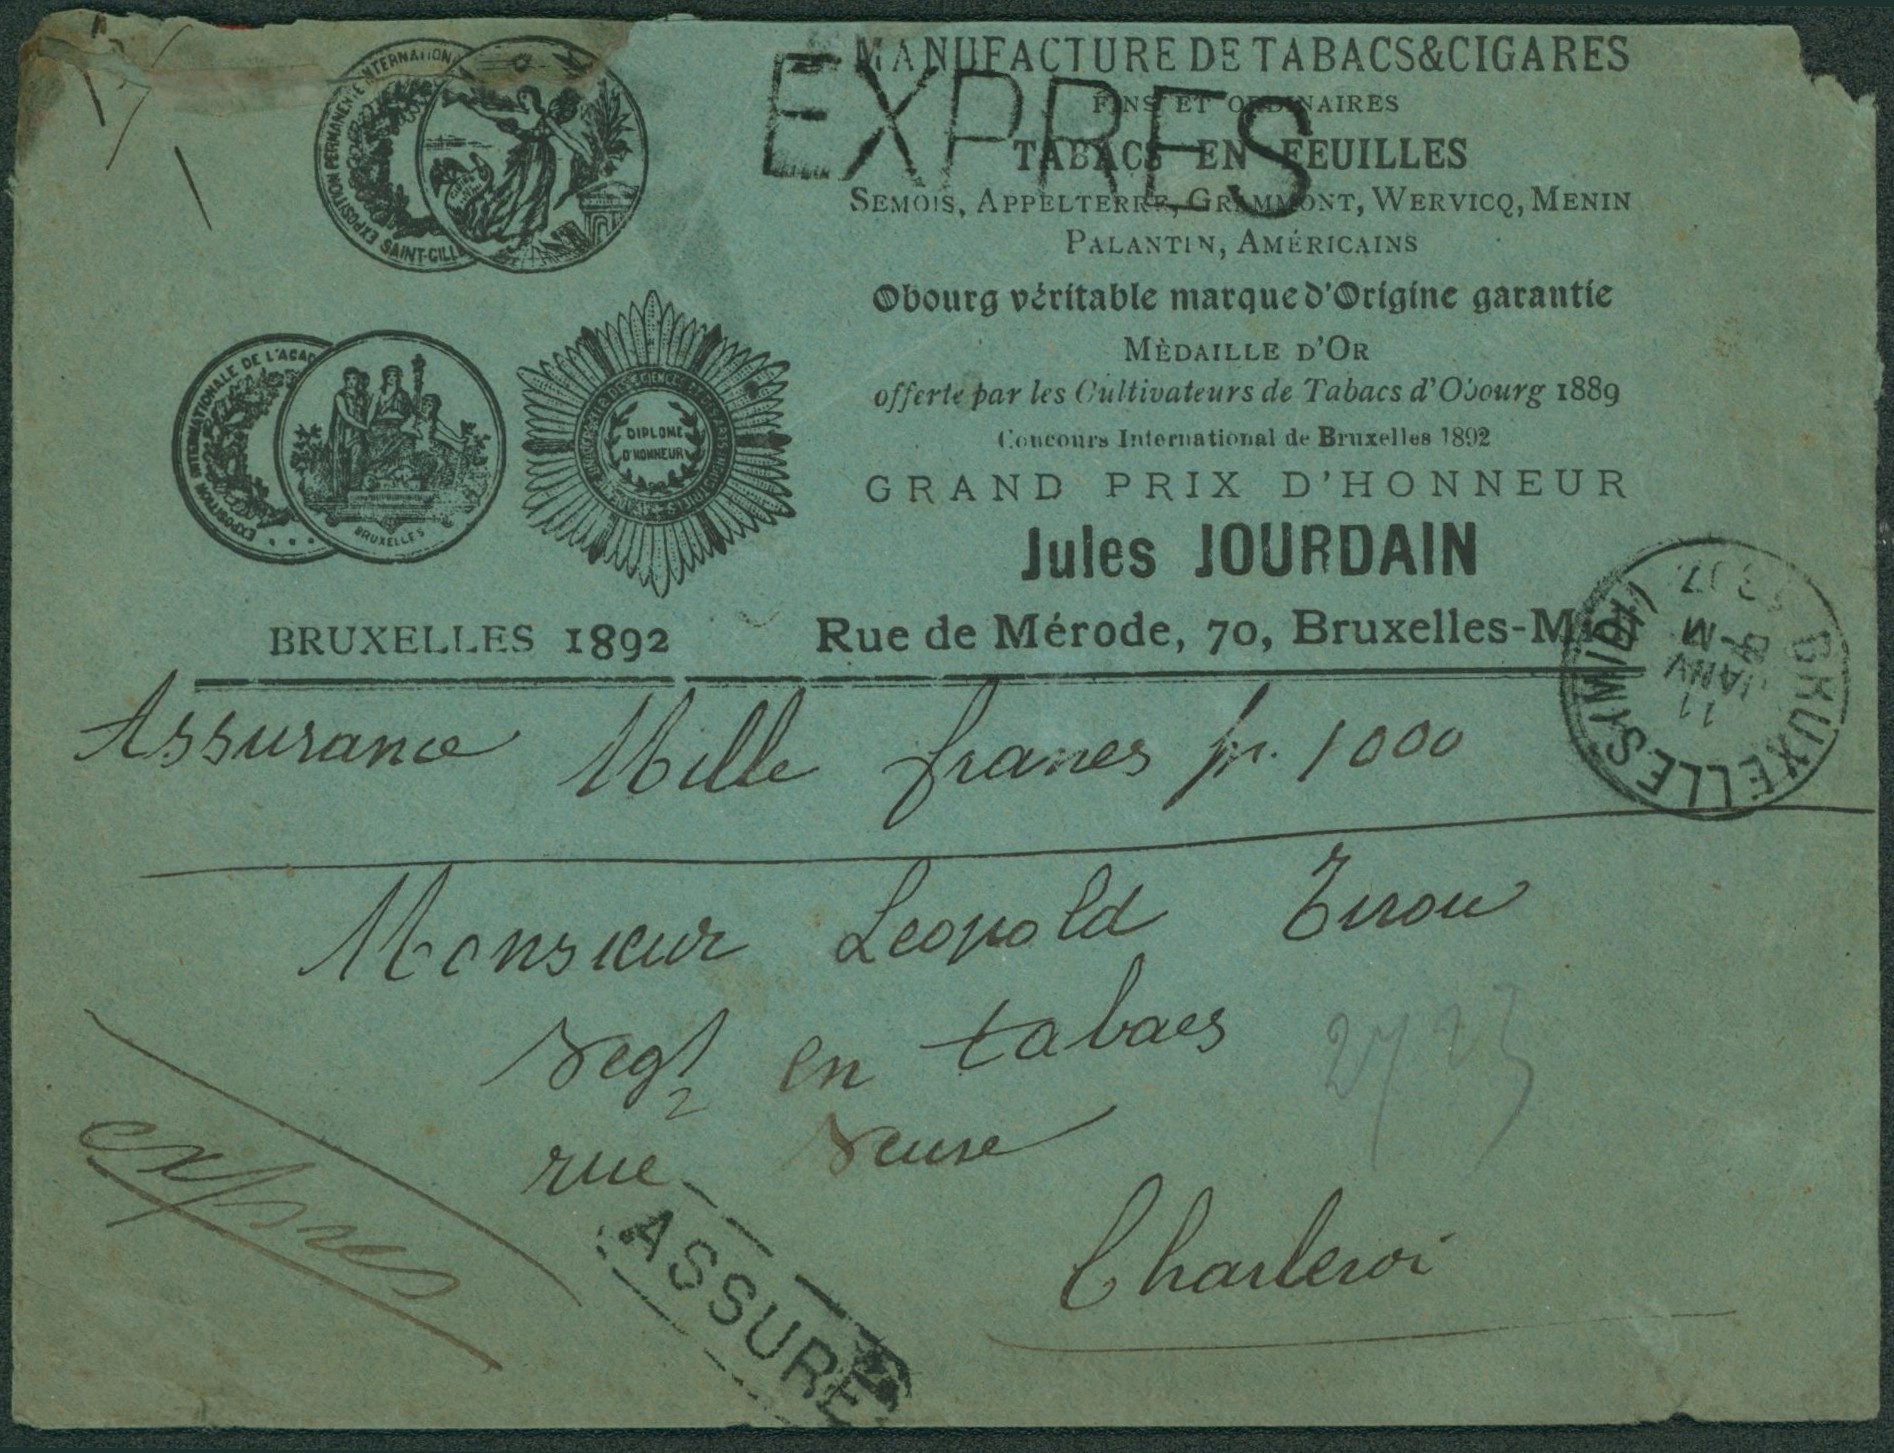 MANUFACTURE DE TABACS & CIGARES
EXPRES
FINS ET ORDINAIRES
TABACS EN FEUILLES
SEMOIS, APPELTERRE, GRAMMONT, WERVICQ, MENIN
PALANTIN, AMÉRICAINS
Obourg véritable marque d'Origine garantie
MÈDAILLE D'OR
offerte par les Cultivateurs de Tabacs d'Obourg 1889
Concours International de Bruxelles 1892
GRAND PRIX D'HONNEUR
Jules JOURDAIN
Rue de Mérode, 70, Bruxelles-Midi
EXPOSITION PERMANENTE INTERNATION
SAINT-GILL
EXPOSITION INTERNATIONALE DE L'ACAD
BRUXELLES
DIPLOME
D'HONNEUR
BRUXELLES 1892
BRUXELLES (MIDI)
11
JANV
M
Assurance Mille francs fr. 1000
Monsieur Leopold Tirou
Negt en tabacs
rue Neuve
Charleroi
expres
ASSURE